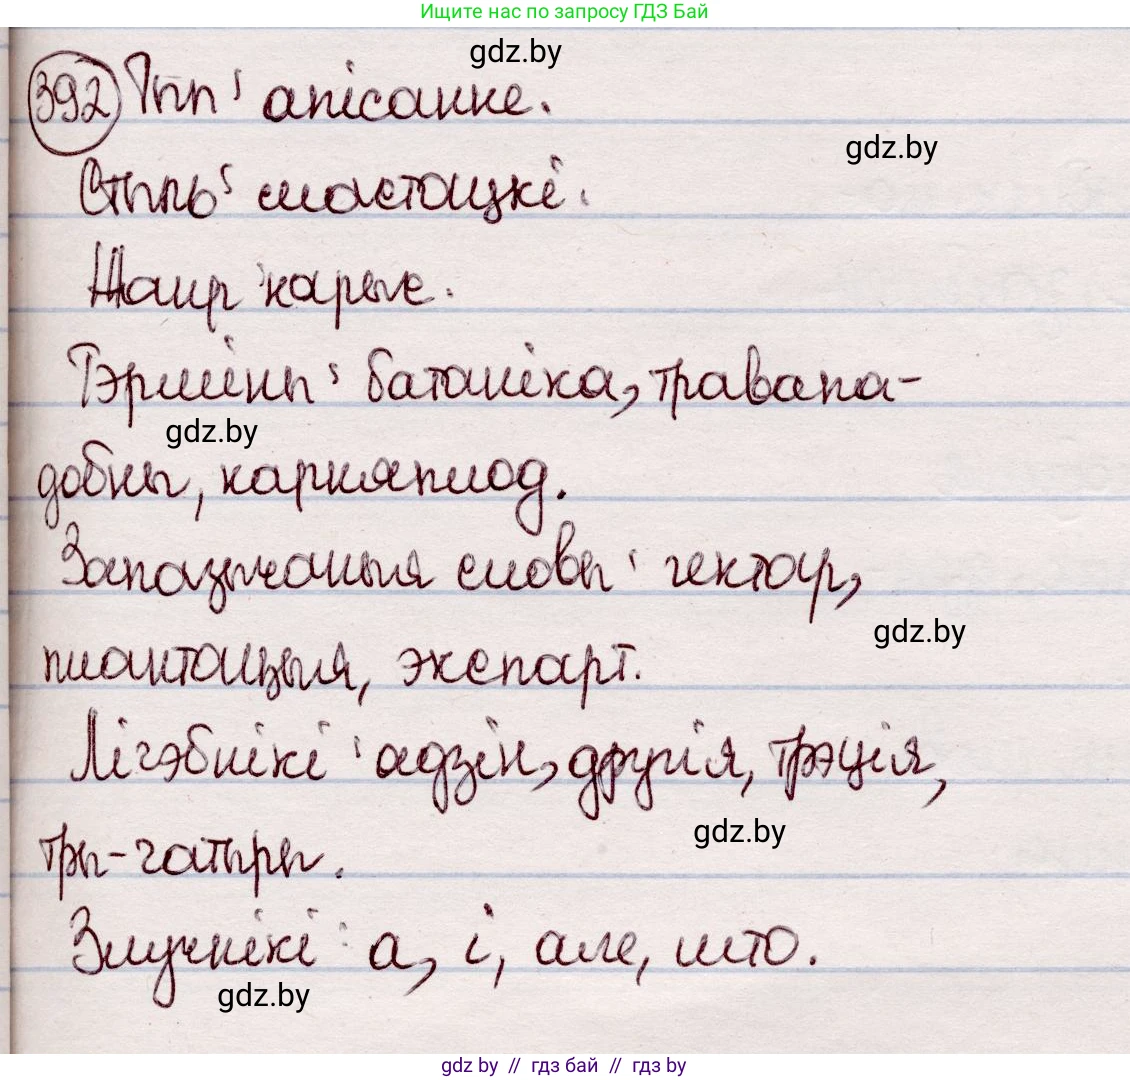 Ищите нас по запросу ГДЗ Бай
gdz.by
392 Тып: апісанне.
gdz.by
Стыль: мастацкі.
Жанр: нарыс.
Тэрміны: батаніка, травапа-
gdz.by
добны, карняплод.
Запазычаныя словы: гектар,
gdz.by
плантацыя, экспарт.
Лічэбнікі: адзін, другія, трэція,
gdz.by
тры-чатыры.
Злучнікі: а, і, але, што.
gdz.by
gdz.by // гдз бай // гдз by